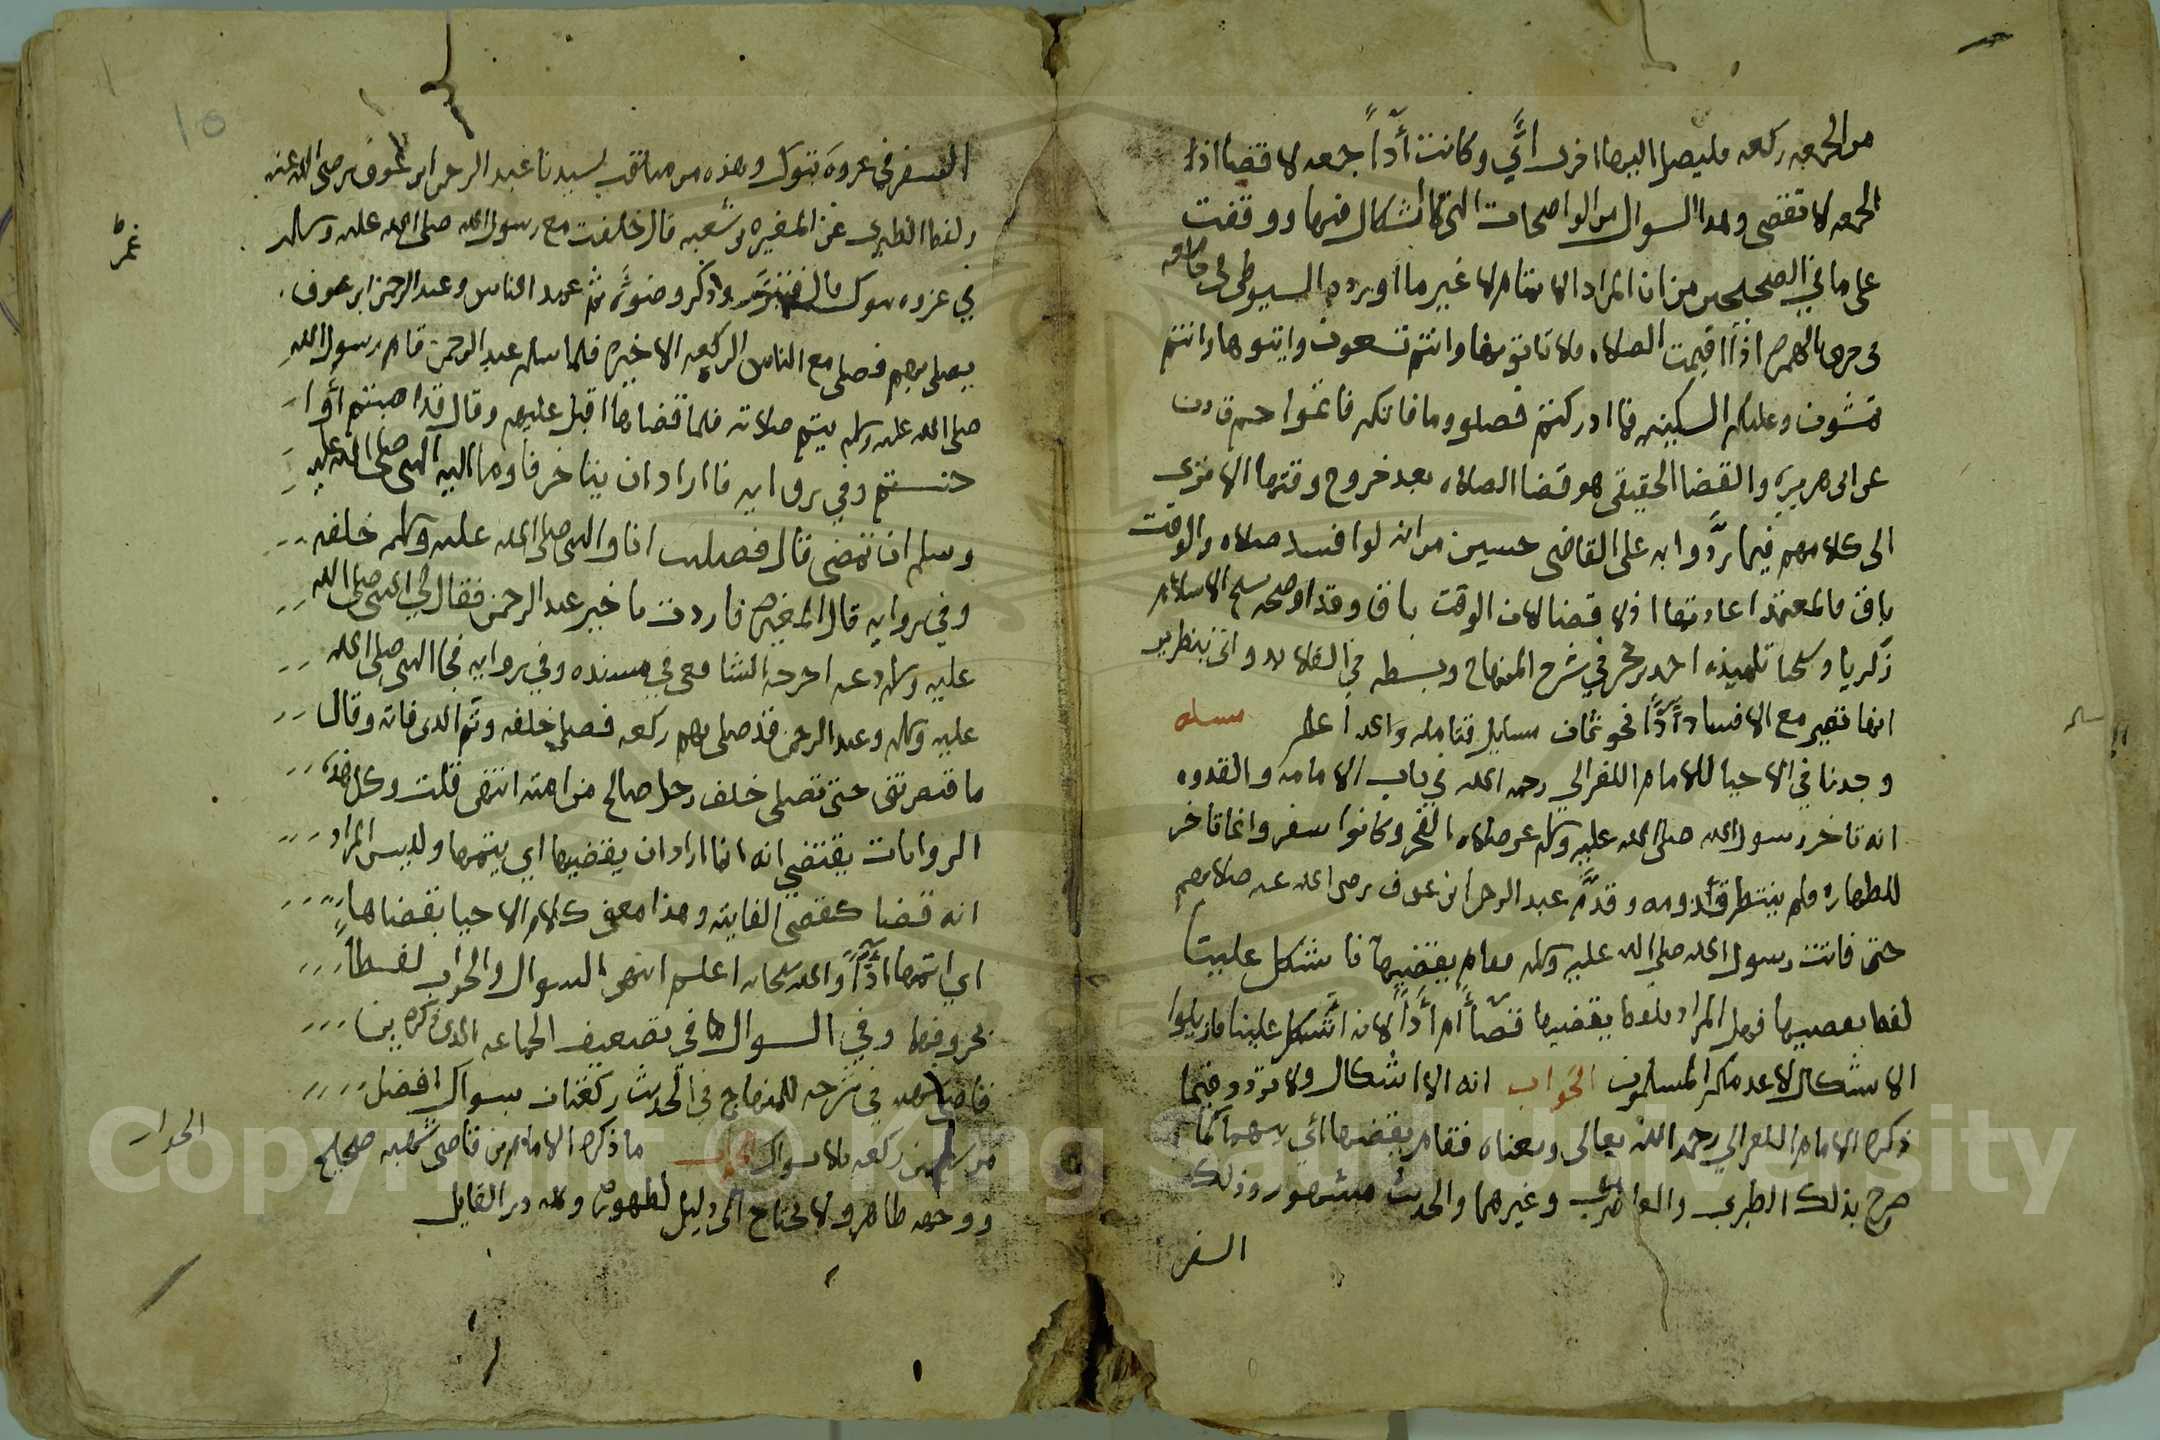 من الجمعه ركعه فليصل اليها اخرى اي وكانت أدآً جمعه لا قضا اذا
الجمعه لا تقضى وهذا السوال من الواضحات التي لا اشكال فيها ووقفت
على ما في الصحيحين من ان المراد الاتمام لا غير ما اورده السيوطي في
اذا اقيمت الصلاه فلا تاتوها وانتم تسعون واتوها وانتم
تمشون وعليكم السكينه فما ادركتم فصلوا وما فاتكم فاتموا حم ق
عن ابي هريره والقضا الحقيقي هو قضا الصلاه بعد خروج وقتها الا ترى
الى كلامهم فيما ردوا به على القاضي حسين من انه لو افسد صلاه والوقت
باق فالمعتمد اعادتها اذ لا قضا لان الوقت باق وقد اوضحه شيخ الاسلام
زكريا وشيخنا تلميذه احمد بن حجر في شرح المنهاج وبسطه في
انها تصير مع الافساد أدآً في ثمان مسايل فتامله والله اعلم مسله
وجدنا في الاحيا للامام الغزالي رحمه الله في باب الامامه والقدوه
انه تاخر رسول الله صلى الله عليه وسلم عن صلاه الفجر وكانوا سفر وانما تاخر
للطهاره فلم ينتظر قدومه وقدم عبد الرحمن ابن عوف رضي الله عنه صلا بهم
حتى فاتت رسول الله صلى الله عليه وسلم فقام يقضيها فاشكل علينا
لفظ يقضيها فهل المراد يقضيها قضآً ام أدآً لانه اشكل علينا فازيلوا
الاشكال لا عدمكم المسلمون الجواب انه لا اشكال ولا تردد فيما
ذكره الامام الغزالي رحمه الله تعالى ومعناه فقام يقضيها اي يتمها كما
صرح بذلك الطبري وغيرهما والحديث مشهور وذلك
السفر
السفر في غزوه تبوك وهذه من مناقب لسيدنا عبد الرحمن ابن عوف رضي الله عنه
ولفظ الطبري عن المغيره بن شعبه قال تخلفت مع رسول الله صلى الله عليه وسلم
في غزوه تبوك قال فتبرز وذكر وضوءه ثم عمد الناس وعبد الرحمن ابن عوف
يصلي بهم فصلى مع الناس الركعه الاخيره فلما سلم عبد الرحمن قام رسول الله
صلى الله عليه وسلم يتم صلاته فلما قضاها اقبل عليهم وقال قد اصبتم أو
احسنتم وفي روايه فاراد ان يتاخر فاوما اليه النبي صلى الله عليه
وسلم ان تمضى قال فصليت انا والنبي صلى الله عليه وسلم خلفه
وفي روايه قال المغيره فاردت تاخير عبد الرحمن فقال لي النبي صلى الله
عليه وسلم دعه اخرجه الشافعي في مسنده وفي روايه فجا النبي صلى الله
عليه وسلم وعبد الرحمن قد صلى بهم ركعه فصلى خلفه وتم الذي فاته وقال
ما قبض نبي حتى تصلى خلف رجل صالح من امته انتهى قلت وكل هذه
الروايات يقتضي انه انما اراد ان يقضيها اي يتمها وليس المراد
انه قضا كقضى الفايته وهذا معنى كلام الاحيا يقضاها
اي اتمها ادآً والله سبحانه اعلم انتهى السوال والجواب لفظا
بحروفها وفي السوال ما في تضعيف الجماعه الذي ذكره ابن
قاضي شهبه في شرحه للمنهاج في الحديث ركعتان بسواك افضل
من سبعين ركعه بلا سواك الجواب ما ذكره الامام بن قاضي شهبه صحيح
ووجهه ظاهر ولا يحتاج الى دليل لظهوره ولله در القايل
الجواب
١٥
Copyright © King Saud University